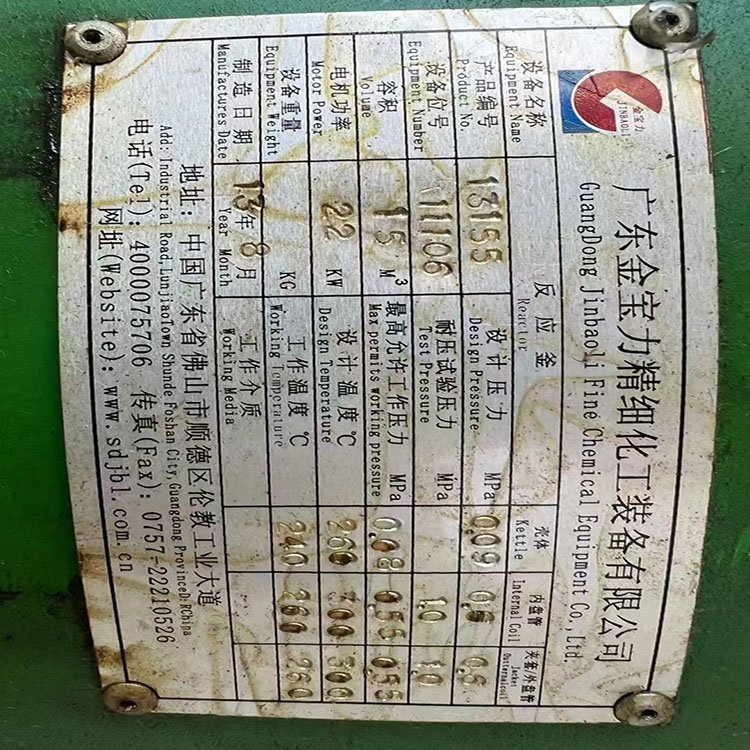 金宝力
JINBAOLI
广东金宝力精细化工装备有限公司
GuangDong Jinbaoli Fine Chemical Equipment Co., Ltd.
设备名称 反应釜 壳体 内盘管 夹套/外盘管
Equipment Name Reactor Kettle Internal Coil Jacket Outternalcoil
产品编号 13155 设计压力 MPa 0.09 0.6 0.6
Product No. Design Pressure
设备位号 11106 耐压试验压力 MPa 1.0 1.0
Equipment Number Test Pressure
容积 15 M³ 最高允许工作压力 MPa 0.08 0.55 0.55
Volume Max permits working pressure
电机功率 22 KW 设计温度 ℃ 260 300 300
Motor Power Design Temperature
设备重量 KG 工作温度 ℃ 240 260 260
Equipment Weight Working Temperature
制造日期 13 年 8 月 工作介质
Manufactures Date Year Month Working Media
地址: 中国广东省佛山市顺德区伦教工业大道
Add: Industrial Road, LunjiaoTown Shunde Foshan City, Guangdong Province
电话(Tel): 4000075706 传真(Fax): 0757-22210526
网址(Website): www.sdjbl.com.cn